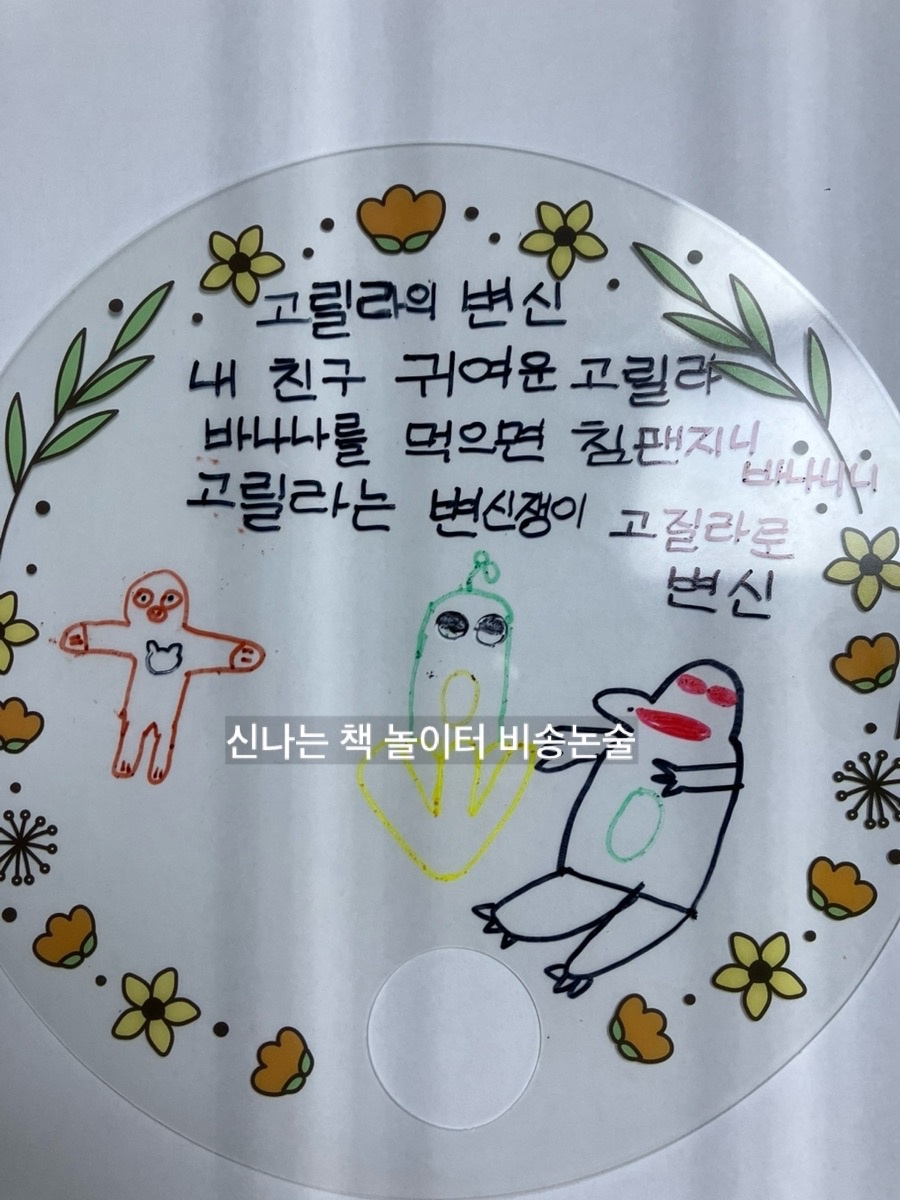 고릴라의 변신
내 친구 귀여운 고릴라
바나나를 먹으면 침팬지니
바나니니
고릴라는 변신쟁이 고질라로
변신
신나는 책 놀이터 비송논술